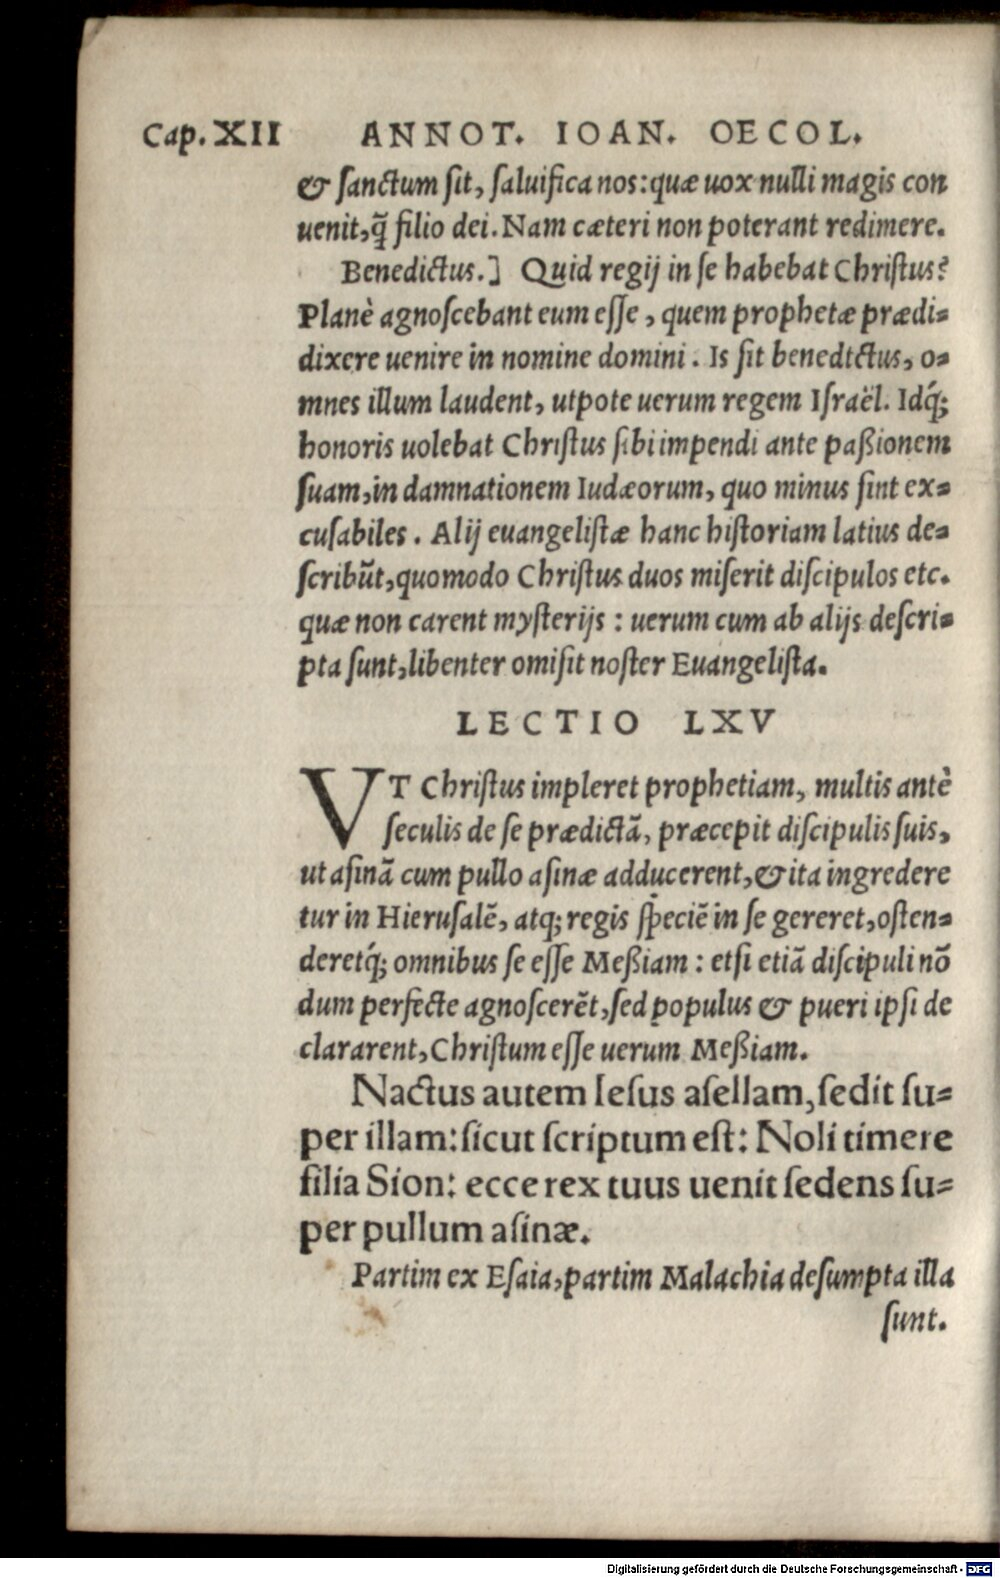 Cap. XII ANNOT. IOAN. OECOL.
& ſanctum ſit, ſaluifica nos: quæ uox nulli magis con
uenit, q̃ filio dei. Nam cæteri non poterant redimere.
Benedictus.] Quid regij in ſe habebat Chriſtus?
Planè agnoſcebant eum eſſe, quem prophetæ prædi=
dixere uenire in nomine domini. Is ſit benedtctus, o=
mnes illum laudent, utpote uerum regem Iſraël. Idq́;
honoris uolebat Chriſtus ſibi impendi ante paßionem
ſuam, in damnationem Iudæorum, quo minus ſint ex=
cuſabiles. Alij euangeliſtæ hanc hiſtoriam latius de=
ſcribũt, quomodo Chriſtus duos miſerit diſcipulos etc.
quæ non carent myſterijs: uerum cum ab alijs deſcri=
pta ſunt, libenter omiſit noſter Euangeliſta.
LECTIO LXV
VT Chriſtus impleret prophetiam, multis antè
ſeculis de ſe prædictã, præcepit diſcipulis ſuis,
ut aſinã cum pullo aſinæ adducerent, & ita ingredere
tur in Hieruſalẽ, atq; regis ſpeciẽ in ſe gereret, oſten=
deretq́; omnibus ſe eſſe Meßiam: etſi etiã diſcipuli nõ
dum perfecte agnoſcerẽt, ſed populus & pueri ipſi de
clararent, Chriſtum eſſe uerum Meßiam.
Nactus autem Ieſus aſellam, ſedit ſu=
per illam: ſicut ſcriptum eſt: Noli timere
filia Sion: ecce rex tuus uenit ſedens ſu=
per pullum aſinæ.
Partim ex Eſaia, partim Malachia deſumpta illa
ſunt.
Digitalisierung gefördert durch die Deutsche Forschungsgemeinschaft - DFG